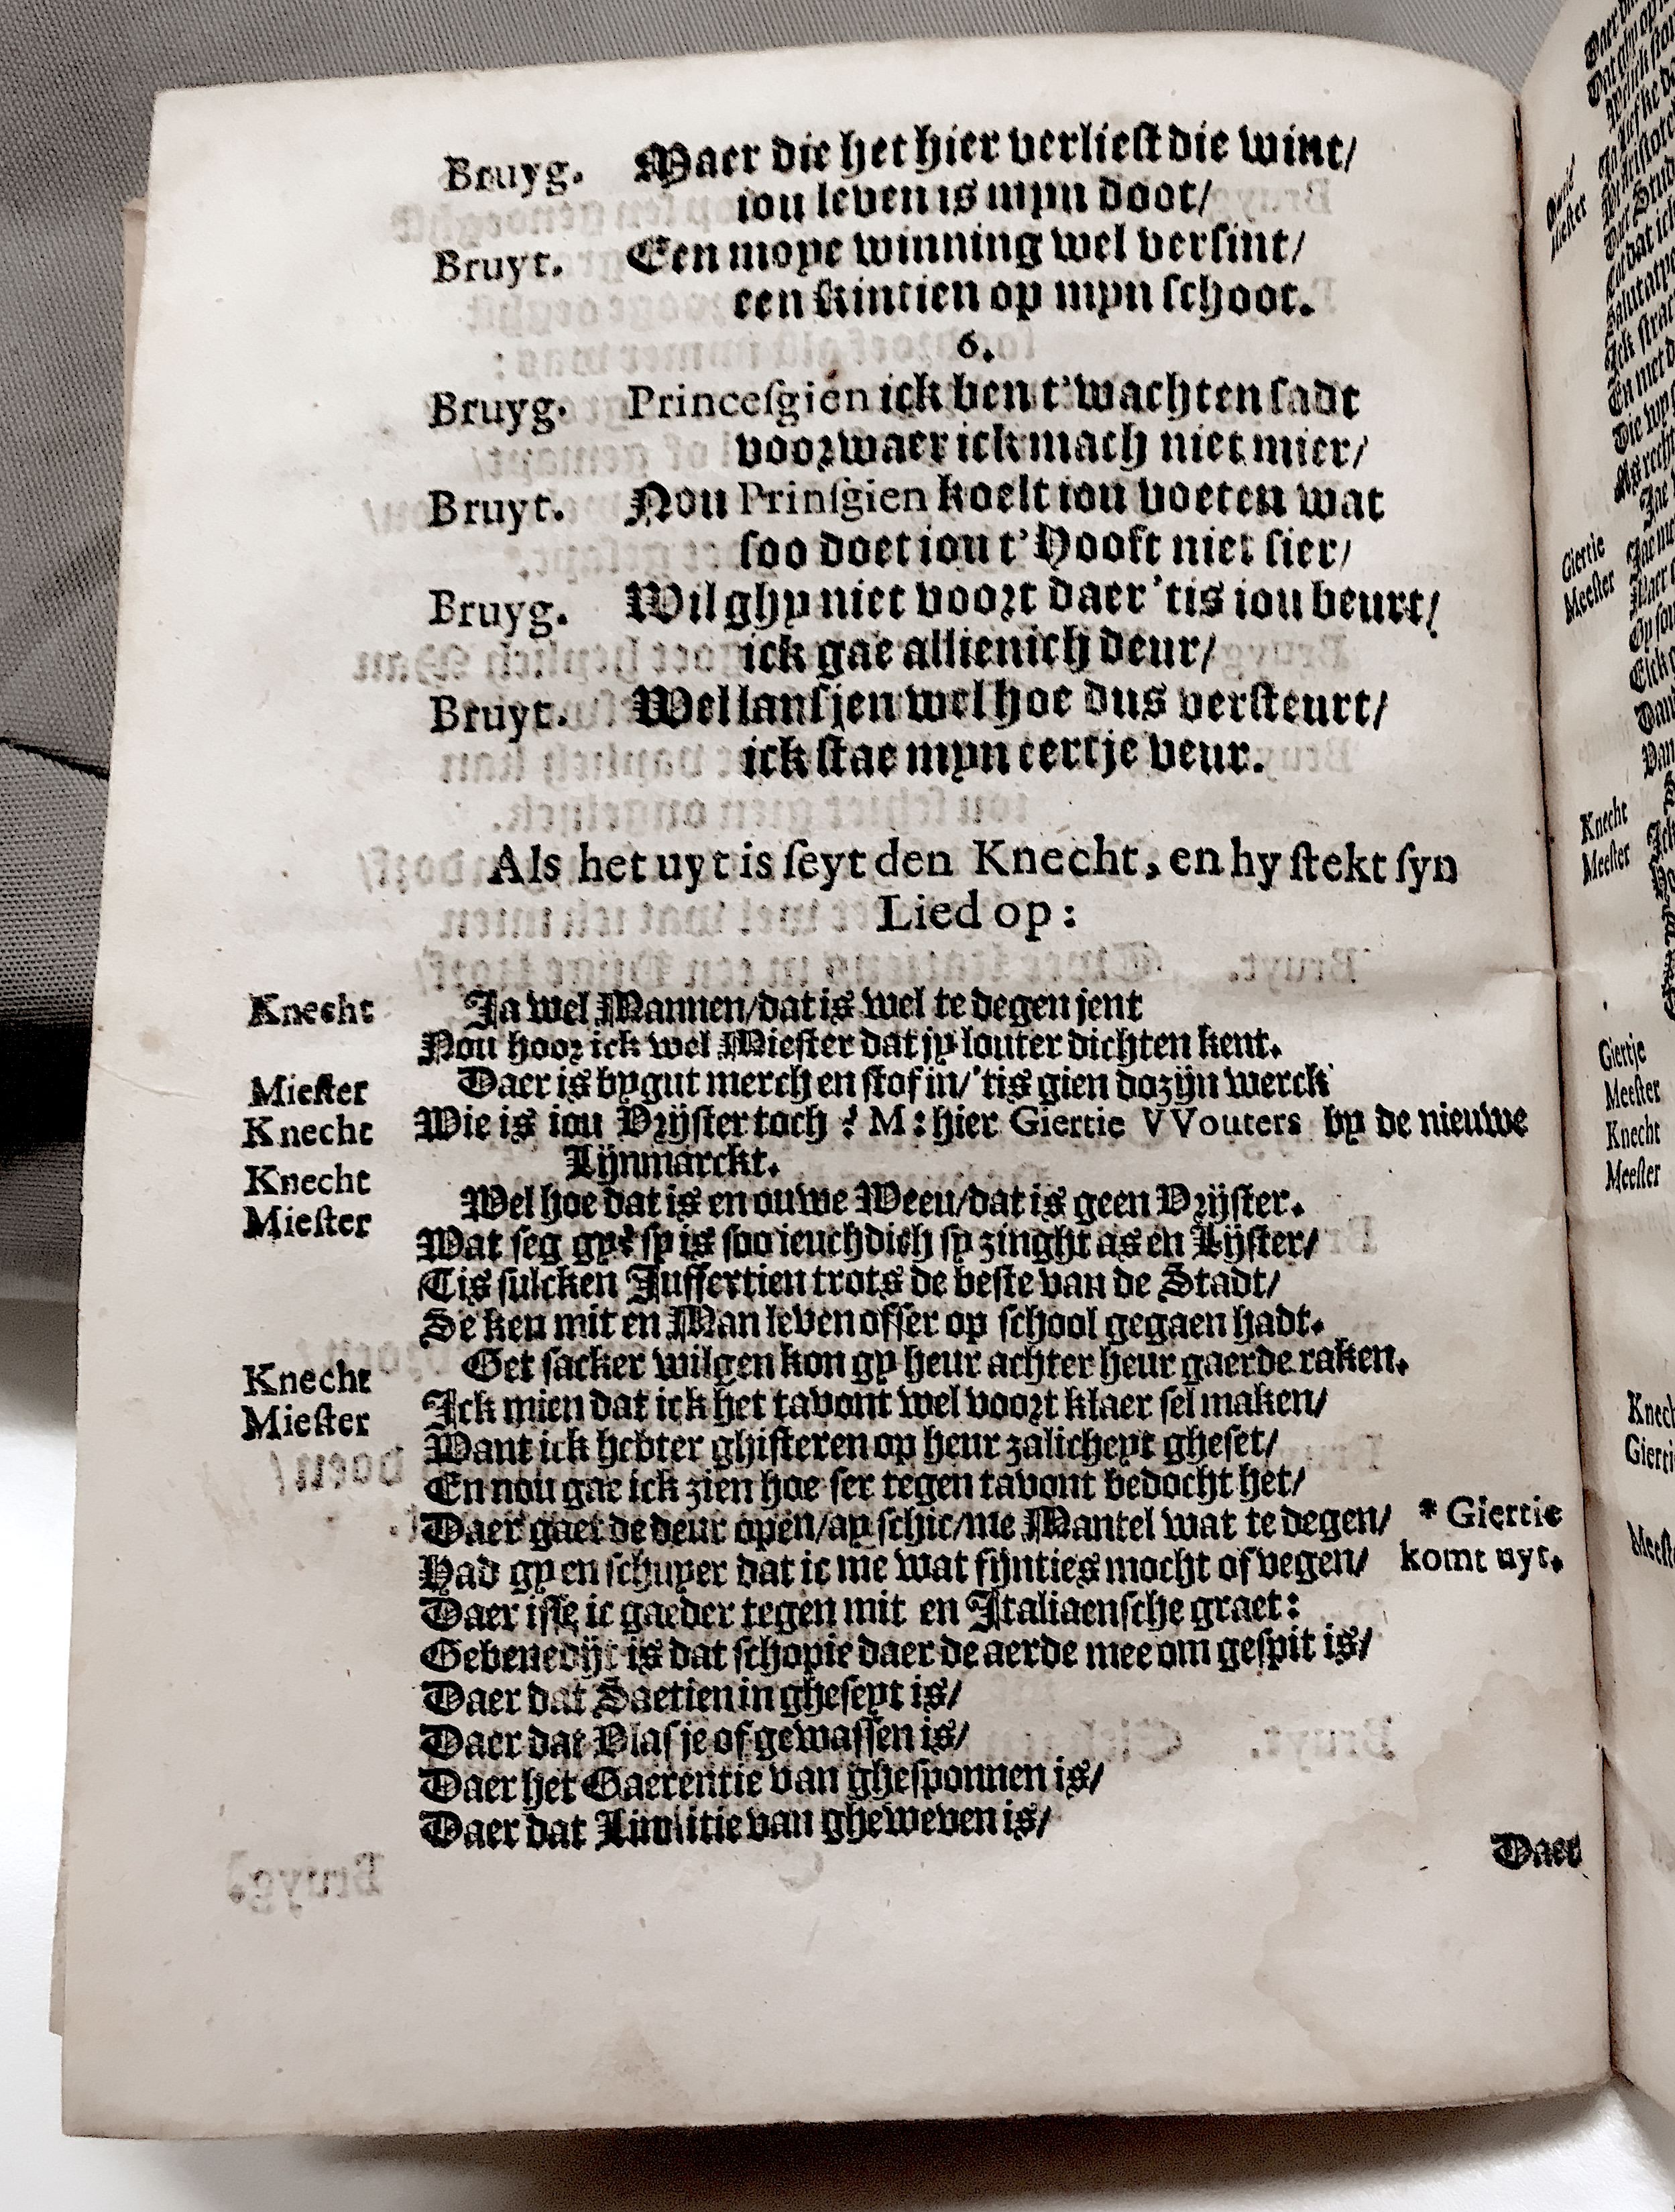 Bruyg. Maer die het hier verliest die wint/
iou leven is myn doot/
Bruyt. Een moye winning wel versint/
een kintien op myn schoot.
6.
Bruyg. Princesgien ick ben t'wachten sadt
voorwaer ick mach niet mier/
Bruyt. Nou Prinsgien koelt iou voeten wat
soo doet iou t'Hooft niet sier/
Bruyg. Wil ghy niet voort daer 'tis iou beurt/
ick gae allienich deur/
Bruyt. Wel lansjen wel hoe dus versteurt/
ick stae myn eertje veur.
Als het uyt is seyt den Knecht, en hy stekt syn
Lied op:
Knecht Ja wel Mannen/dat is wel te degen jent
Nou hoor ick wel Miester dat jy louter dichten kent.
Miester Daer is bygut merch en stof in/'tis gien dozijn werck
Knecht Wie is iou Vrijster toch? M: hier Giertie VVouters by de nieuwe
Lijnmarckt.
Knecht Wel hoe dat is en ouwe Weeu/dat is geen Vrijster.
Miester Wat seg gy? sy is soo ieuchdich sy zinght as en Lijster/
Tis sulcken Juffertien trots de beste van de Stadt/
Se ken mit en Man leven offer op school gegaen hadt.
Knecht Get sacker wilgen kon gy heur achter heur gaerde raken.
Miester Ick mien dat ick het tavont wel voort klaer sel maken/
Want ick hebter ghisteren op heur zalicheyt gheset/
En nou gae ick zien hoe ser tegen tavont bedocht het/
Daer gaet de deur open/ay schic/me Mantel wat te degen/ * Giertie
Had gy en schuyer dat ic me wat fijnties mocht of vegen/ komt uyt.
Daer isse ic gaeder tegen mit en Italiaensche graet:
Gebenedijt is dat schopie daer de aerde mee om gespit is/
Daer dat Saetien in gheseyt is/
Daer dat Vlasje of gewassen is/
Daer het Gaerentie van ghesponnen is/
Daer dat van gheweven is/
Daer